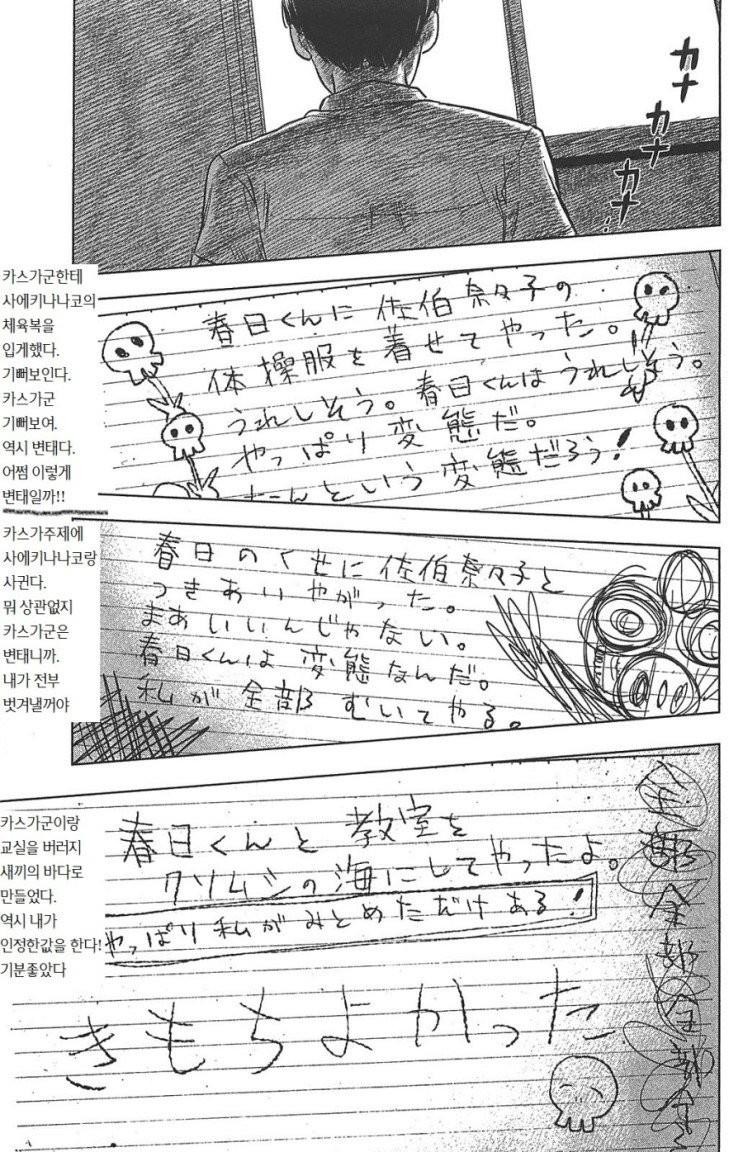 カナカナカナ…
카스가군한테
사에키나나코의
체육복을
입게했다.
기뻐보인다.
카스가군
기뻐보여.
역시 변태다.
어쩜 이렇게
변태일까!!
春日くんに佐伯奈々子の
体操服を着せてやった。
うれしそう。春日くんはうれしそう。
やっぱり変態だ。
なんという変態だろう!
카스가주제에
사에키나나코랑
사귄다.
뭐 상관없지
카스가군은
변태니까.
내가 전부
벗겨낼꺼야
春日のくせに佐伯奈々子と
つきあいやがった。
まあいいんじゃない。
春日くんは変態なんだ。
私が全部むいてやる。
카스가군이랑
교실을 버러지
새끼의 바다로
만들었다.
역시 내가
인정한값을 한다!
기분좋았다
春日くんと教室を
クソムシの海にしてやったよ。
やっぱり私がみとめただけある!
きもちよかった
全部全部全部全